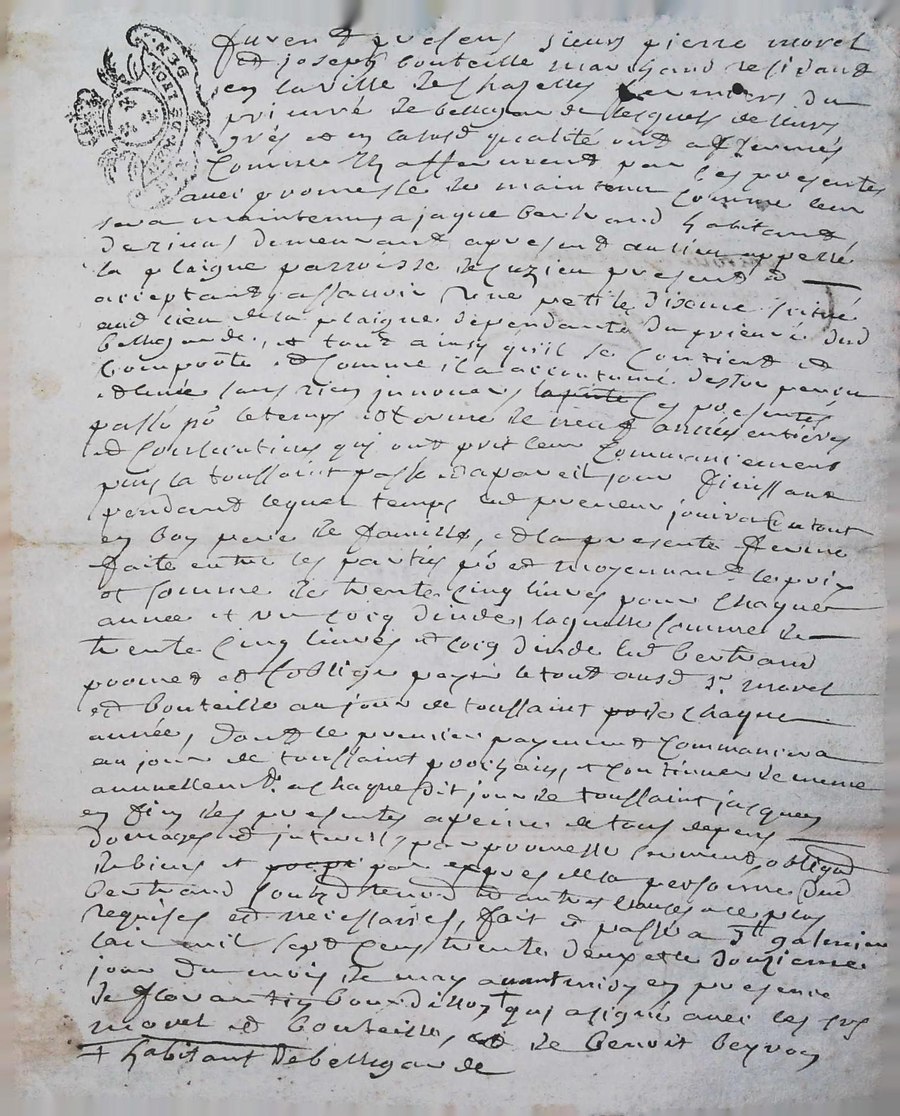 GEN. DE LION
furent presens sieurs pierre morel
et joseph bouteille marchand residant
en la ville de chaselles fermiers du
prieuré de bellegarde lesquels de leurs
grés et en lad qualité ont affermés
comme ils afferment par ces presentes
avec promesse de maintenir comme leur
sera maintenus a jaque bertrand habitant
de rivas demeurant apresent au lieu appellé
la plaigne parroisse de cuzieu present et
acceptant, assavoir une petite dixme scitué
aud lieu de la plaigne dependante du prieuré dud
bellegarde, et tout ainsy qu'il se contient et
comporte et comme il a accoutumé destre percu
et levée sans rien innover ces presentes
passé pr le temps et terme de neuf années entieres
et consecutives qui ont prit leur commancement
puis la toussaint passé et a pareil jour finissant
pendant lequel temps led preneur jouira du tout
en bon pere de famille, et la presente ferme
faite entre les parties pr et moyennant le prix
et somme de trente cinq livres pour chaque
année et un cocq dinde, laquelle somme de
trente cinq livres et cocq dinde led bertrand
promet et soblige payer le tout ausd srs morel
et bouteille au jour de toussaint de chaque
année, dont le premier payement commancera
au jour de toussaint prochain, et continuer de meme
annuellemt a chaque dit jour de toussaint jusques
en fin des presentes a peine de tous depens
domages et interets, par promesse serment, obligaon
de biens et par expres de la personne dud
bertrand et autres clauses a ce plus
requises et necessaires, fait et passé a St galmier
lan mil sept cens trente deux et le douzieme
jour du mois de may avant midy en presence
de florantin bourdillon + qui a signé avec les srs
morel et bouteille, et de benoit beyron
+ habitant de bellegarde